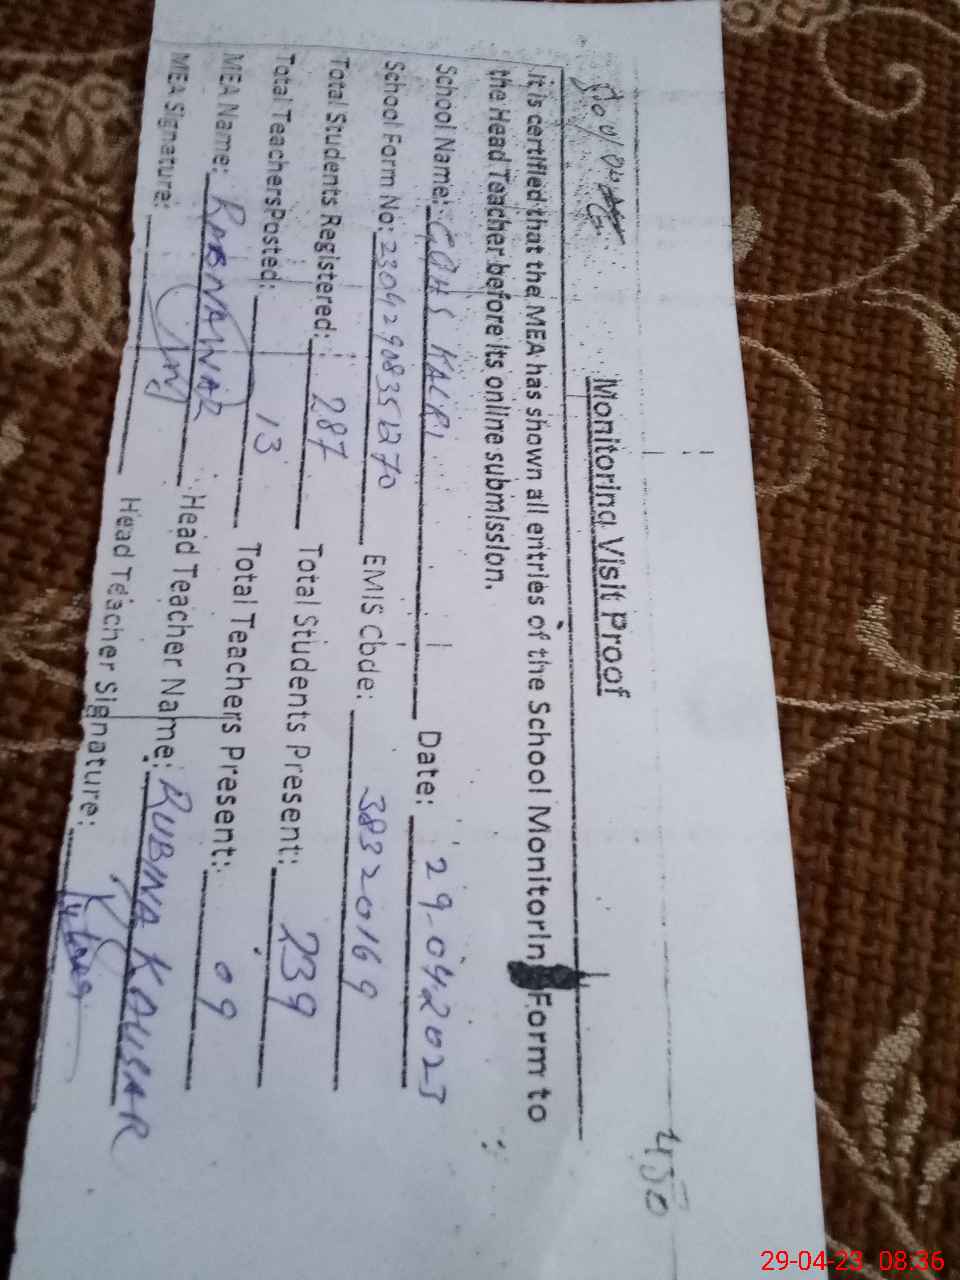 450
Monitoring Visit Proof
It is certified that the MEA has shown all entries of the School MonitorIn Form to
the Head Teacher before its online submission.
School Name: GGHS KALRI Date: 29-04-2023
School Form No: 23042908351270 EMIS Code: 38320169
Total Students Registered: 287 Total Students Present: 239
Total TeachersPosted: 13 Total Teachers Present: 09
MEA Name: RABNAWAZ Head Teacher Name: RUBINA KAUSAR
MEA Signature: Head Teacher Signature:
29-04-23 08:36